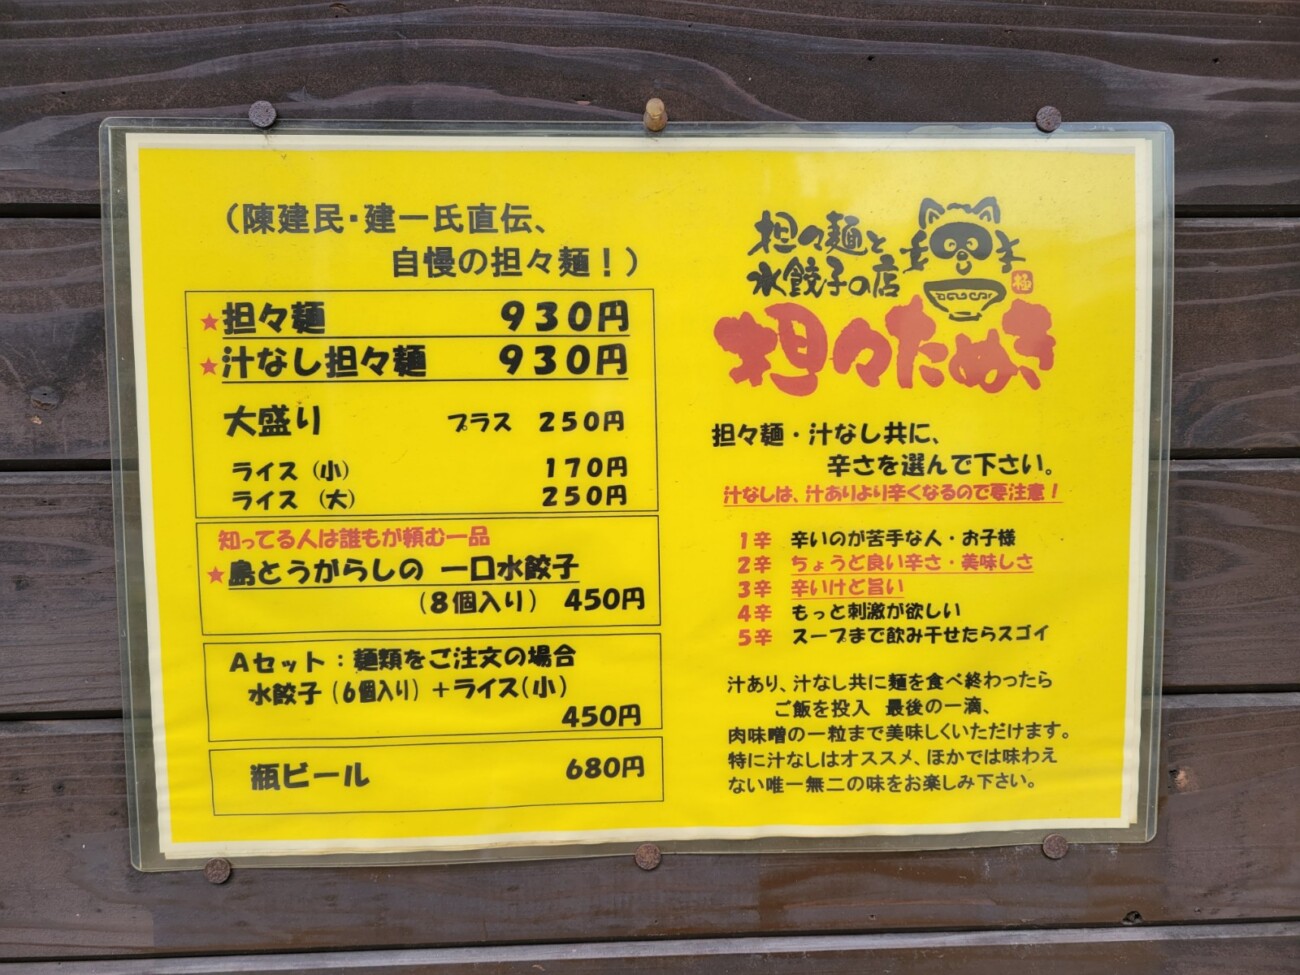 （陳建民・建一氏直伝、
自慢の担々麺！）
★担々麺　９３０円
★汁なし担々麺　９３０円
大盛り　プラス　２５０円
ライス（小）　１７０円
ライス（大）　２５０円
知ってる人は誰もが頼む一品
★島とうがらしの 一口水餃子
（８個入り） 450円
Ａセット：麺類をご注文の場合
水餃子（６個入り）＋ライス（小）
450円
瓶ビール　680円
担々麺と
水餃子の店
極
担々たぬき
担々麺・汁なし共に、
辛さを選んで下さい。
汁なしは、汁ありより辛くなるので要注意！
１辛　辛いのが苦手な人・お子様
２辛　ちょうど良い辛さ・美味しさ
３辛　辛いけど旨い
４辛　もっと刺激が欲しい
５辛　スープまで飲み干せたらスゴイ
汁あり、汁なし共に麺を食べ終わったら
ご飯を投入　最後の一滴、
肉味噌の一粒まで美味しくいただけます。
特に汁なしはオススメ、ほかでは味わえ
ない唯一無二の味をお楽しみ下さい。